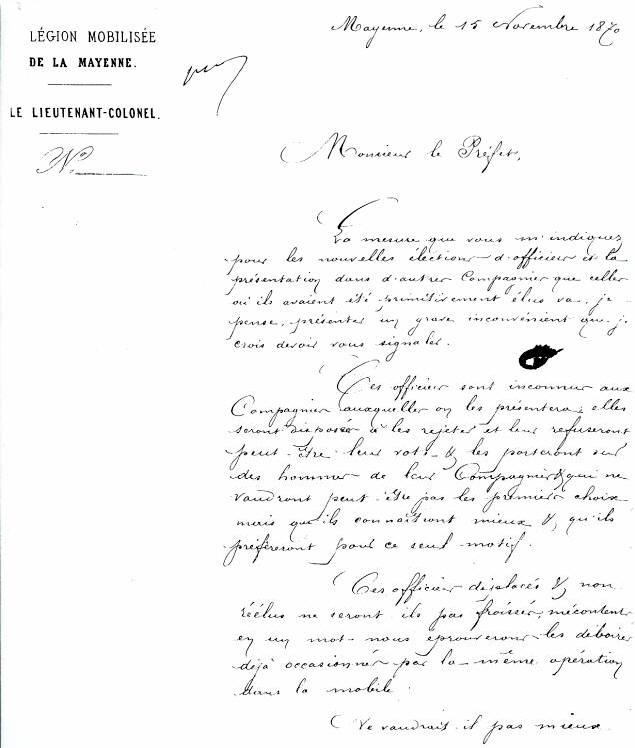 Mayenne, le 15 Novembre 1870
LÉGION MOBILISÉE
DE LA MAYENNE.
LE LIEUTENANT-COLONEL.
N°
Monsieur le Préfet,
La mesure que vous m'indiquez
pour les nouvelles élections d'officiers et la
présentation dans d'autres Compagnies que celles
où ils avaient été primitivement élus va, je
pense, présenter un grave inconvénient que je
crois devoir vous signaler.
Ces officiers sont inconnus aux
Compagnies auxquelles on les présentera; elles
seront disposées à les rejeter et leur refuseront
peut-être leur vote & les porteront sur
des hommes de leur Compagnies & qui ne
vaudront peut être pas les premiers choix
mais qu'ils connaîtront mieux & qu'ils
préfèreront pour ce seul motif.
Ces officiers déplacés & non
réélus ne seront ils pas froissés, mécontents
en un mot nous éprouverons les déboires
déjà occasionnés par la même opération
dans la mobile.
Ne vaudrait-il pas mieux